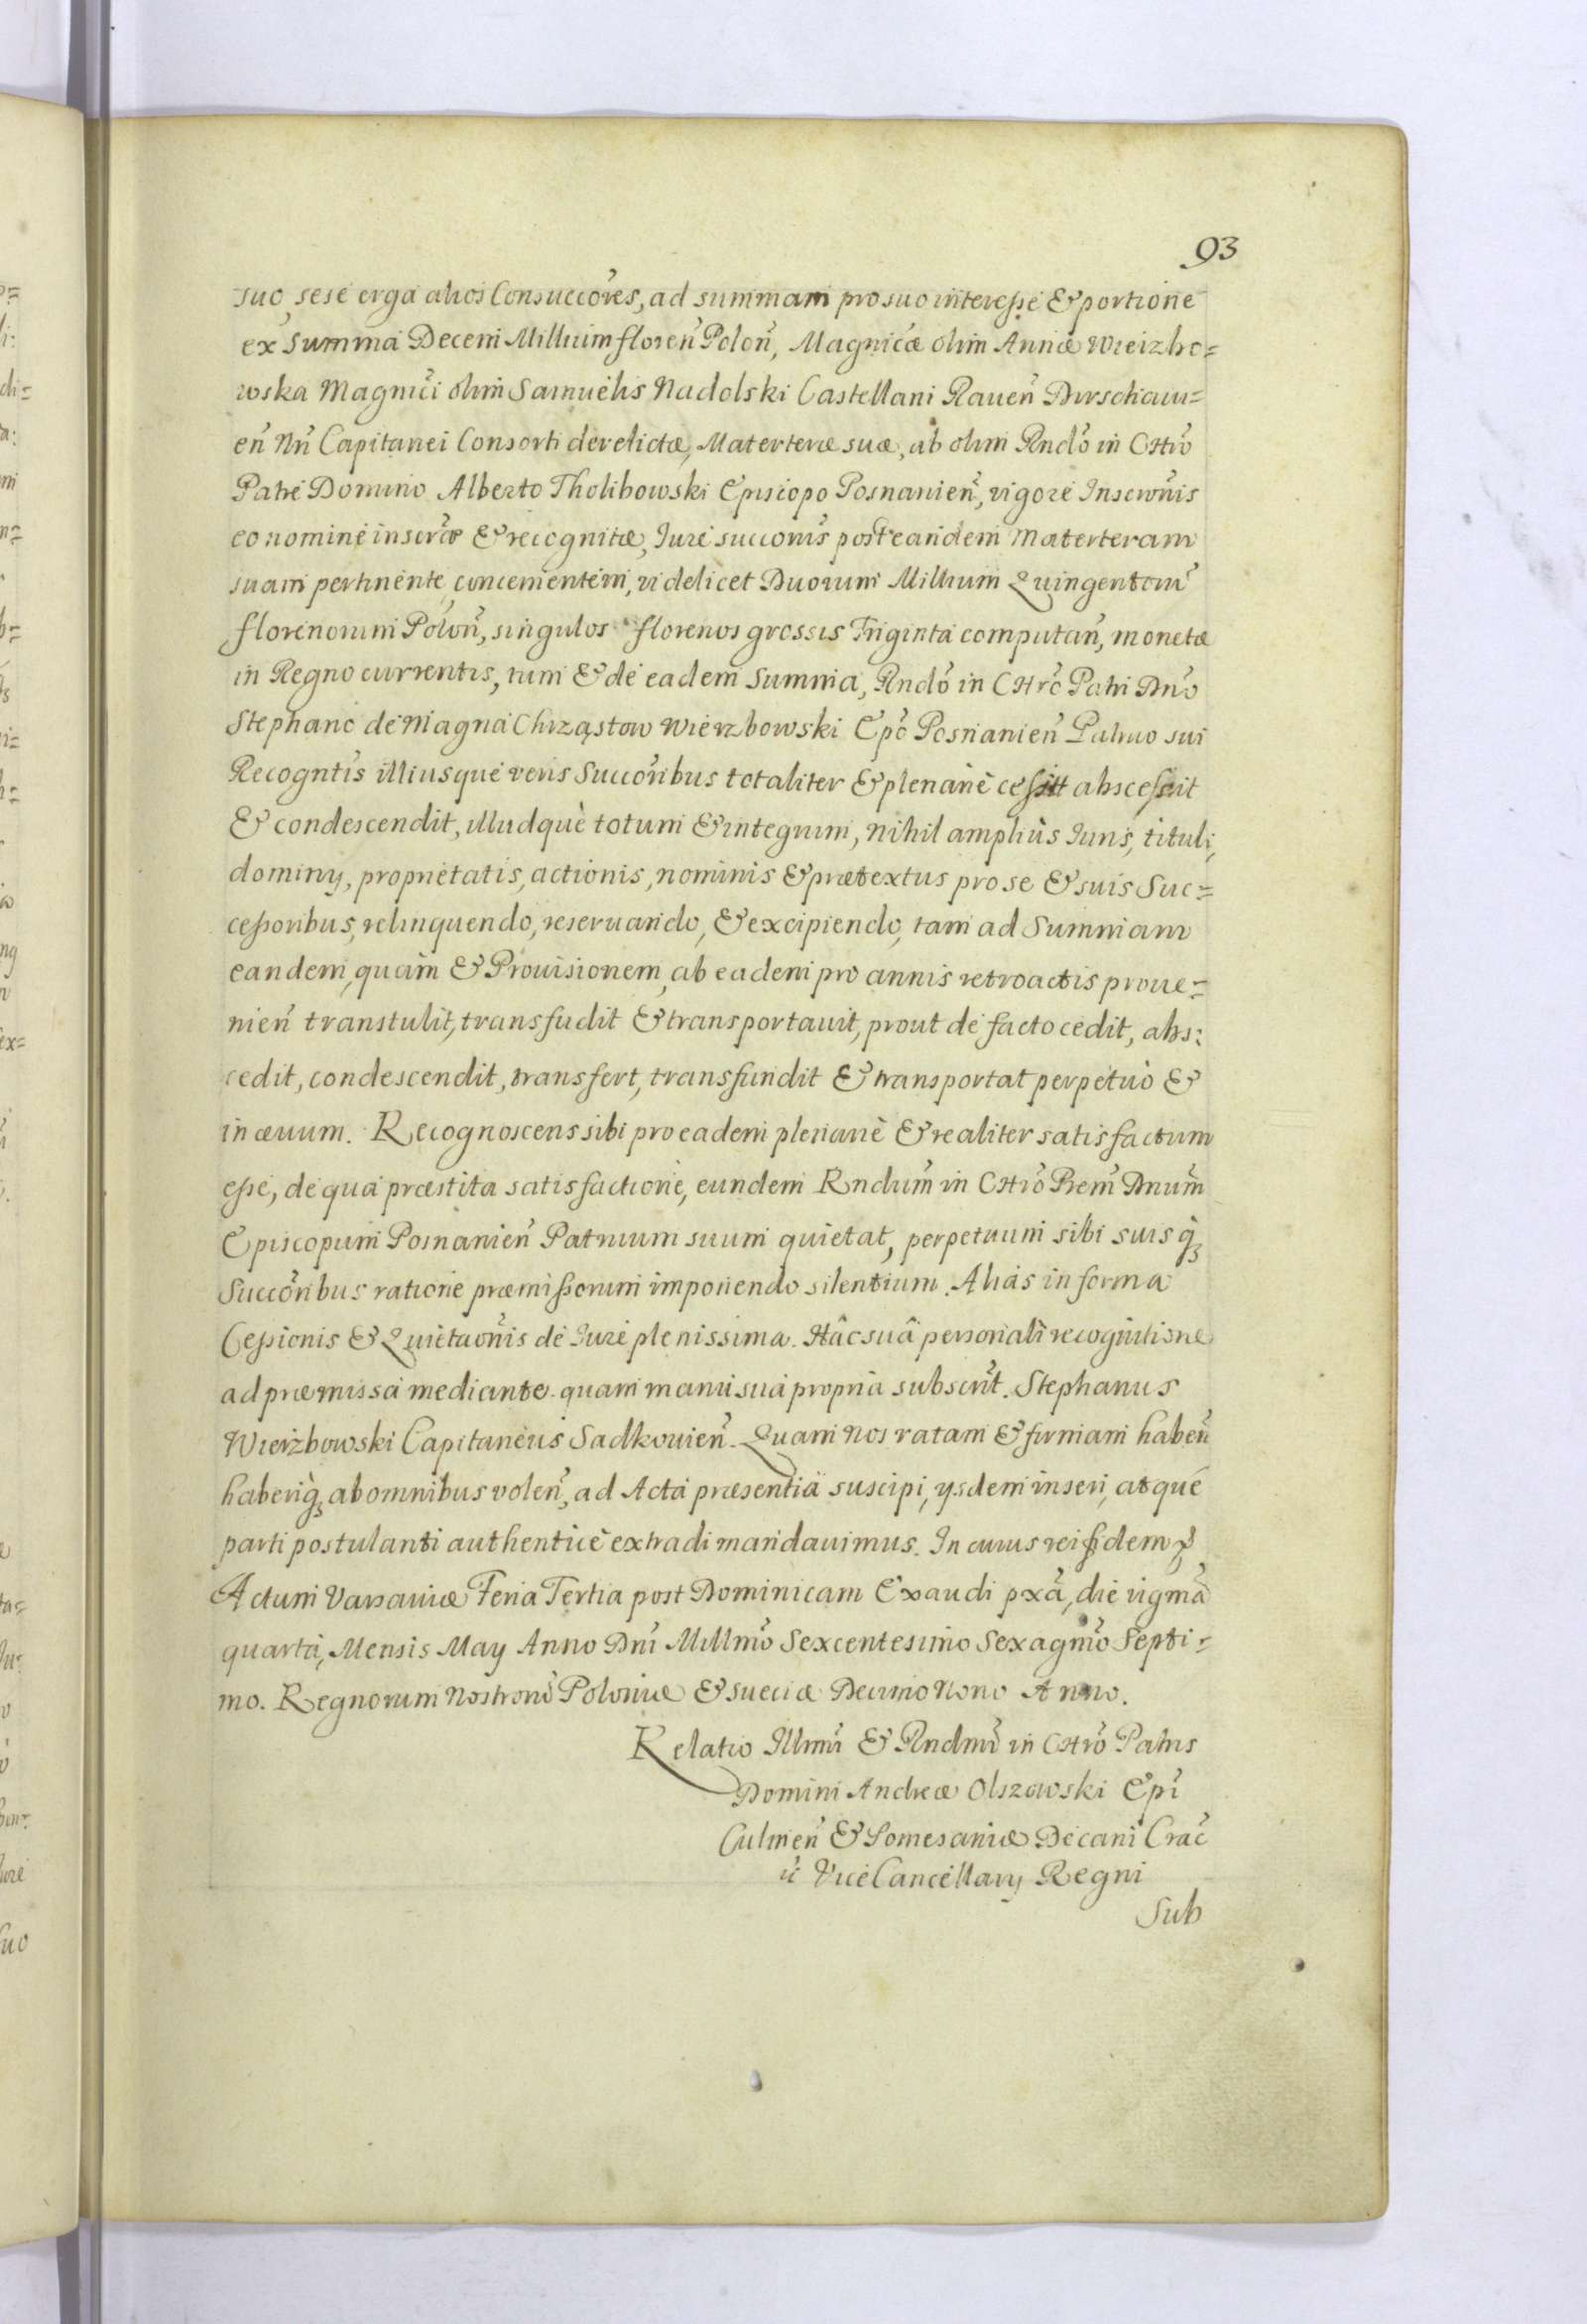 93
suo, sese erga alios Consuccõres, ad summam pro suo interesse & portione
ex Summa Decem Millium floreñ Poloñ, Magnicæ olim Annæ Wieizbo=
wska Magnici olim Samuelis Nadolski Castellani Raueñ Dirschauu=
eñ Nñ Capitanei Consorti derelictæ, Materteræ suæ, ab olim Rndo in CHro
Patre Domino Alberto Tholibowski Episcopo Posnanieñ, vigore Inscronis
eo nomine inscræ & recognitæ, Iure succonis post eandem Materteram
suam pertinente, concernentem, videlicet Duorum Millium Quingentorum
florenorum Poloñ, singulos florenos grossis Triginta computañ, monetæ
in Regno currentis, tum & de eadem Summa, Rndo in CHro Patri Dno
Stephano de Magna Chrząstow Wierzbowski Epo Posnanieñ Patruo sui
Recogntis illiusque veris Succoribus totaliter & plenarie cessit abscessit
& condescendit, illudque totum & integrum, nihil amplius Iuris, tituli,
dominy, proprietatis, actionis, nominis & prætextus pro se & suis Suc=
cessoribus, relinquendo, reseruando, & excipiendo, tam ad Summam
eandem, quàm & Prouisionem, ab eadem pro annis retroactis proue=
nieñ transtulit, transfudit & transportauit, prout de facto cedit, abs:
cedit, condescendit, transfert, transfundit & transportat perpetuò &
in æuum. Recognoscens sibi pro eadem plenariè & realiter satisfactum
esse, de qua præstita satisfactione, eundem Rndum in CHro Prem Dnum
Episcopum Posnanieñ Patruum suum quietat, perpetuum sibi suisq̃
Succoribus ratione præmissorum imponendo silentium. Aliàs in forma
Cessionis & Quietaonis de Iure plenissima. Hâc suâ personali recognitione
ad præmissa mediante. quam manu sua propria subscrit. Stephanus
Wierzbowski Capitaneus Sadkouieñ. Quam Nos ratam & firmam habeñ
haberiq̃ ab omnibus voleñ, ad Acta præsentia suscipi, ysdem inseri, atque
parti postulanti authenticè extradi mandauimus. In cuius rei fidem p
Actum Varsauiæ Feria Tertia post Dominicam Exaudi pxa, die vigma
quarta, Mensis May Anno Dni Millmo Sexcentesimo Sexagmo Septi=
mo. Regnorum Nostroru Poloniæ & Sueciæ Decimo Nono Anno.
Relatio Illmi & Rndmi in CHro Patris
Domini Andreæ Olszowski Epi
Culmeñ & Pomesaniæ Decani Crac
ic ViceCancellary Regni
Sub